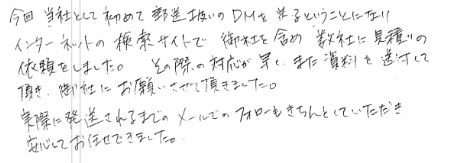 今回 当社として初めて郵送扱いのDMを送るということになり
インターネットの検索サイトで御社を含め数社に見積りの
依頼をしました。その際の対応が早く、また資料を送付して
頂き、御社にお願いさせて頂きました。
実際に発送されるまでのメールでのフォローもきちんとしていただき
安心してお任せできました。